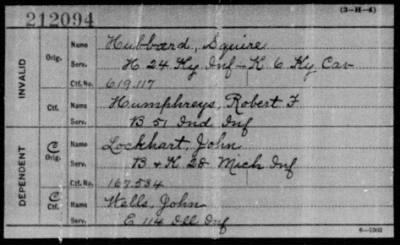 (3-H-4)
212094
INVALID
Orig.
Name Hubbard, Squire
Serv. H 24 Ky Inf - K 6 Ky Cav
Ctf. No. 619.117
Ctf.
Name Humphreys, Robert F
Serv. B 51 Ind Inf
DEPENDENT
C Orig.
Name Lockhart, John
Serv. B & K 28 Mich Inf
Ctf. No. 167.534
C Ctf.
Name Wells, John
Serv. E 114 Ill Inf